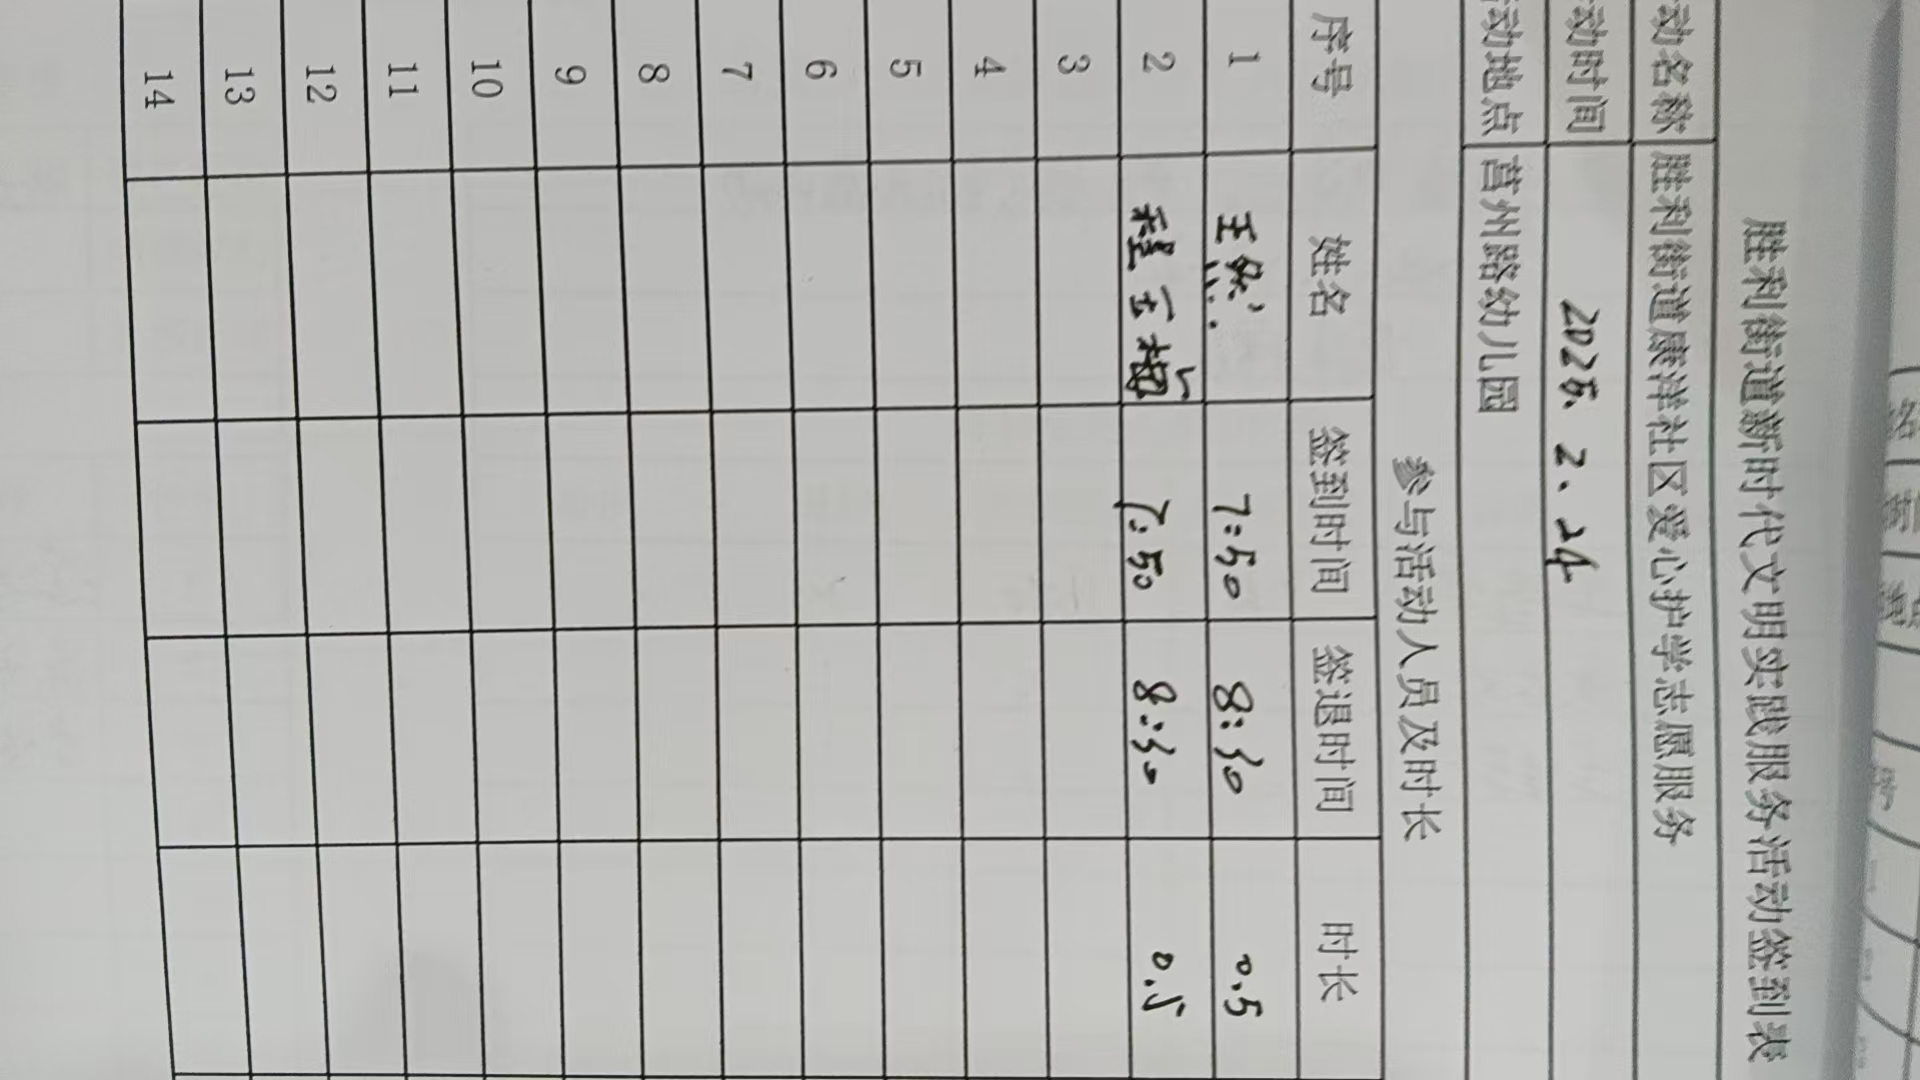 胜利街道新时代文明实践服务活动签到表
动名称 胜利街道康洋社区爱心护学志愿服务
动时间 2025.2.24
动地点 莒州路幼儿园
参与活动人员及时长
序号 姓名 签到时间 签退时间 时长
1 王 7:50 8:30 0.5
2 程云 7:50 8:30 0.5
3
4
5
6
7
8
9
10
11
12
13
14